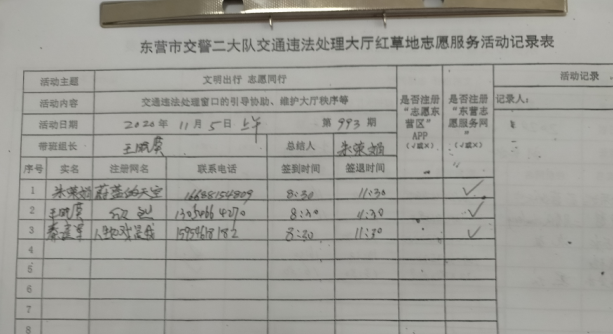 东营市交警二大队交通违法处理大厅红草地志愿服务活动记录表
活动主题 文明出行 志愿同行
活动内容 交通违法处理窗口的引导协助、维护大厅秩序等
是否注册“志愿东营区”APP（√或×）
是否注册“东营志愿服务网”（√或×）
活动记录
记录人：
活动日期 2020年11月5日上午 第993期
带班组长 总结人
序号 实名 注册网名 联系电话 签到时间 签退时间
1 蔚蓝的天空 16688154809 8:30 11:30 ✓
2 8:30 11:30 ✓
3 8:30 11:30 ✓
4
5
6
7
8